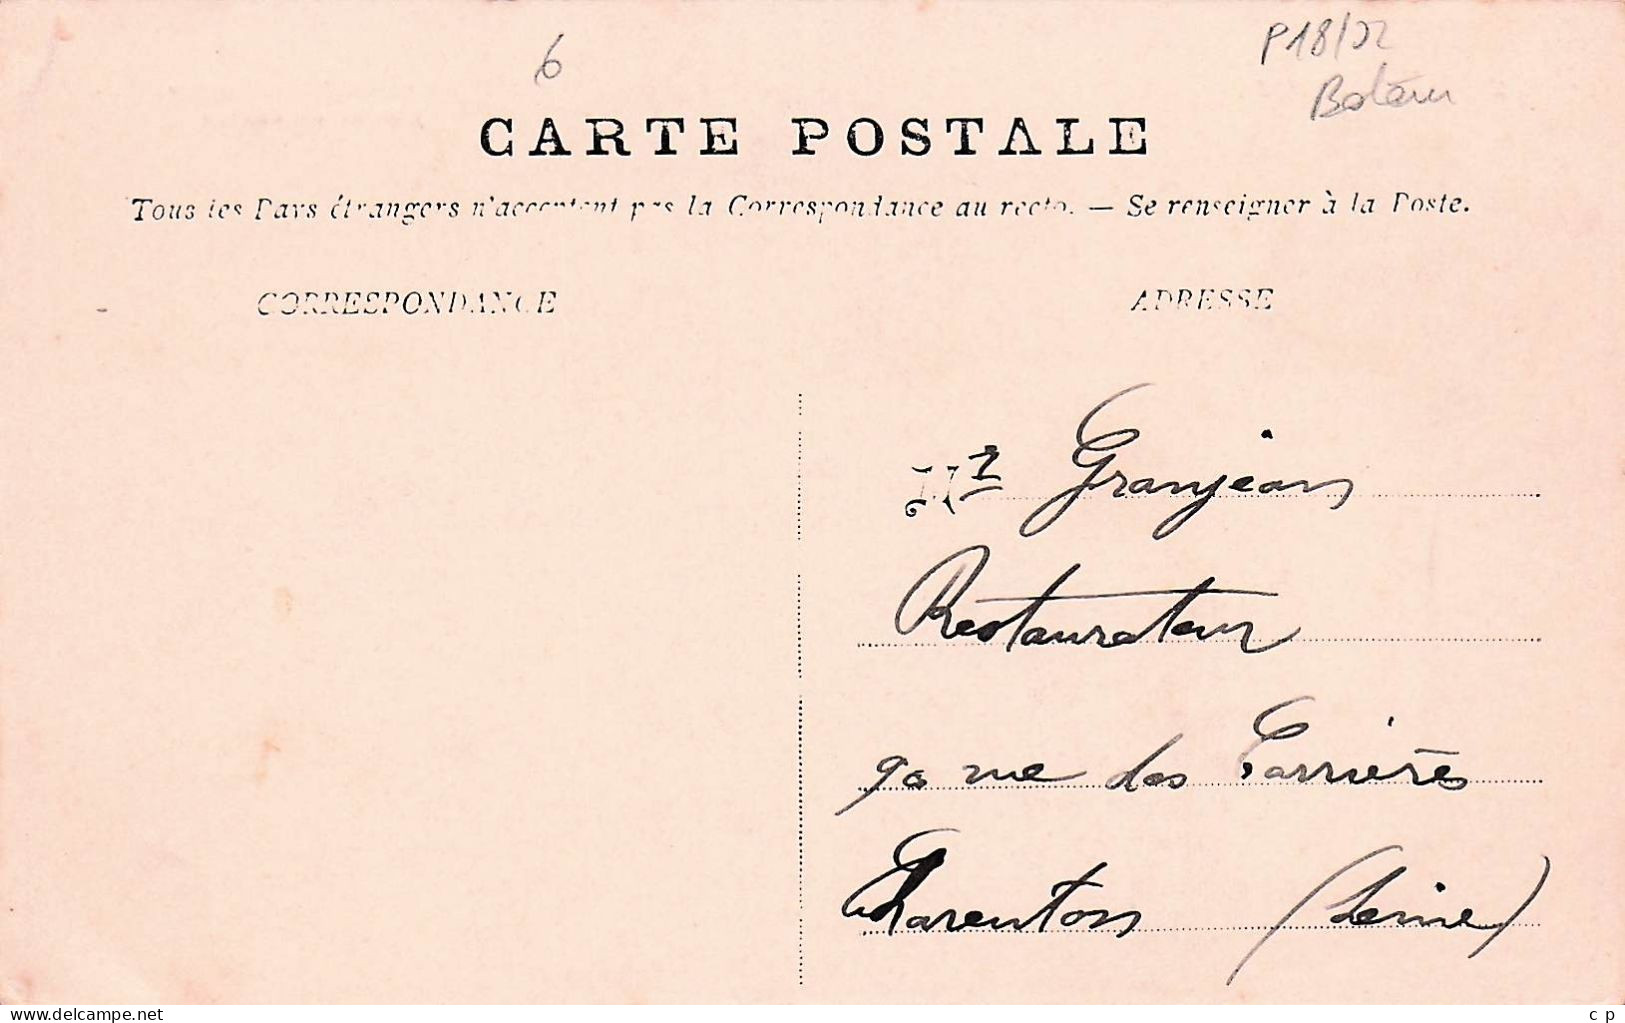 6
P18/22
CARTE POSTALE
Tous les Pays étrangers n'acceptent pas la Correspondance au recto. — Se renseigner à la Poste.
CORRESPONDANCE
ADRESSE
Mr Granjean
Restaurateur
90 rue des Carrières
Charenton (Seine)
www.delcampe.net
c p